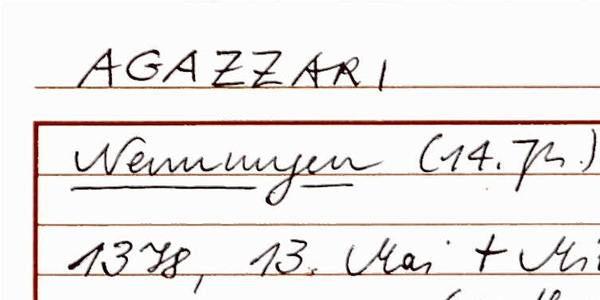 AGAZZARI
Nennungen (14. Jh.)
1378, 13. Mai +